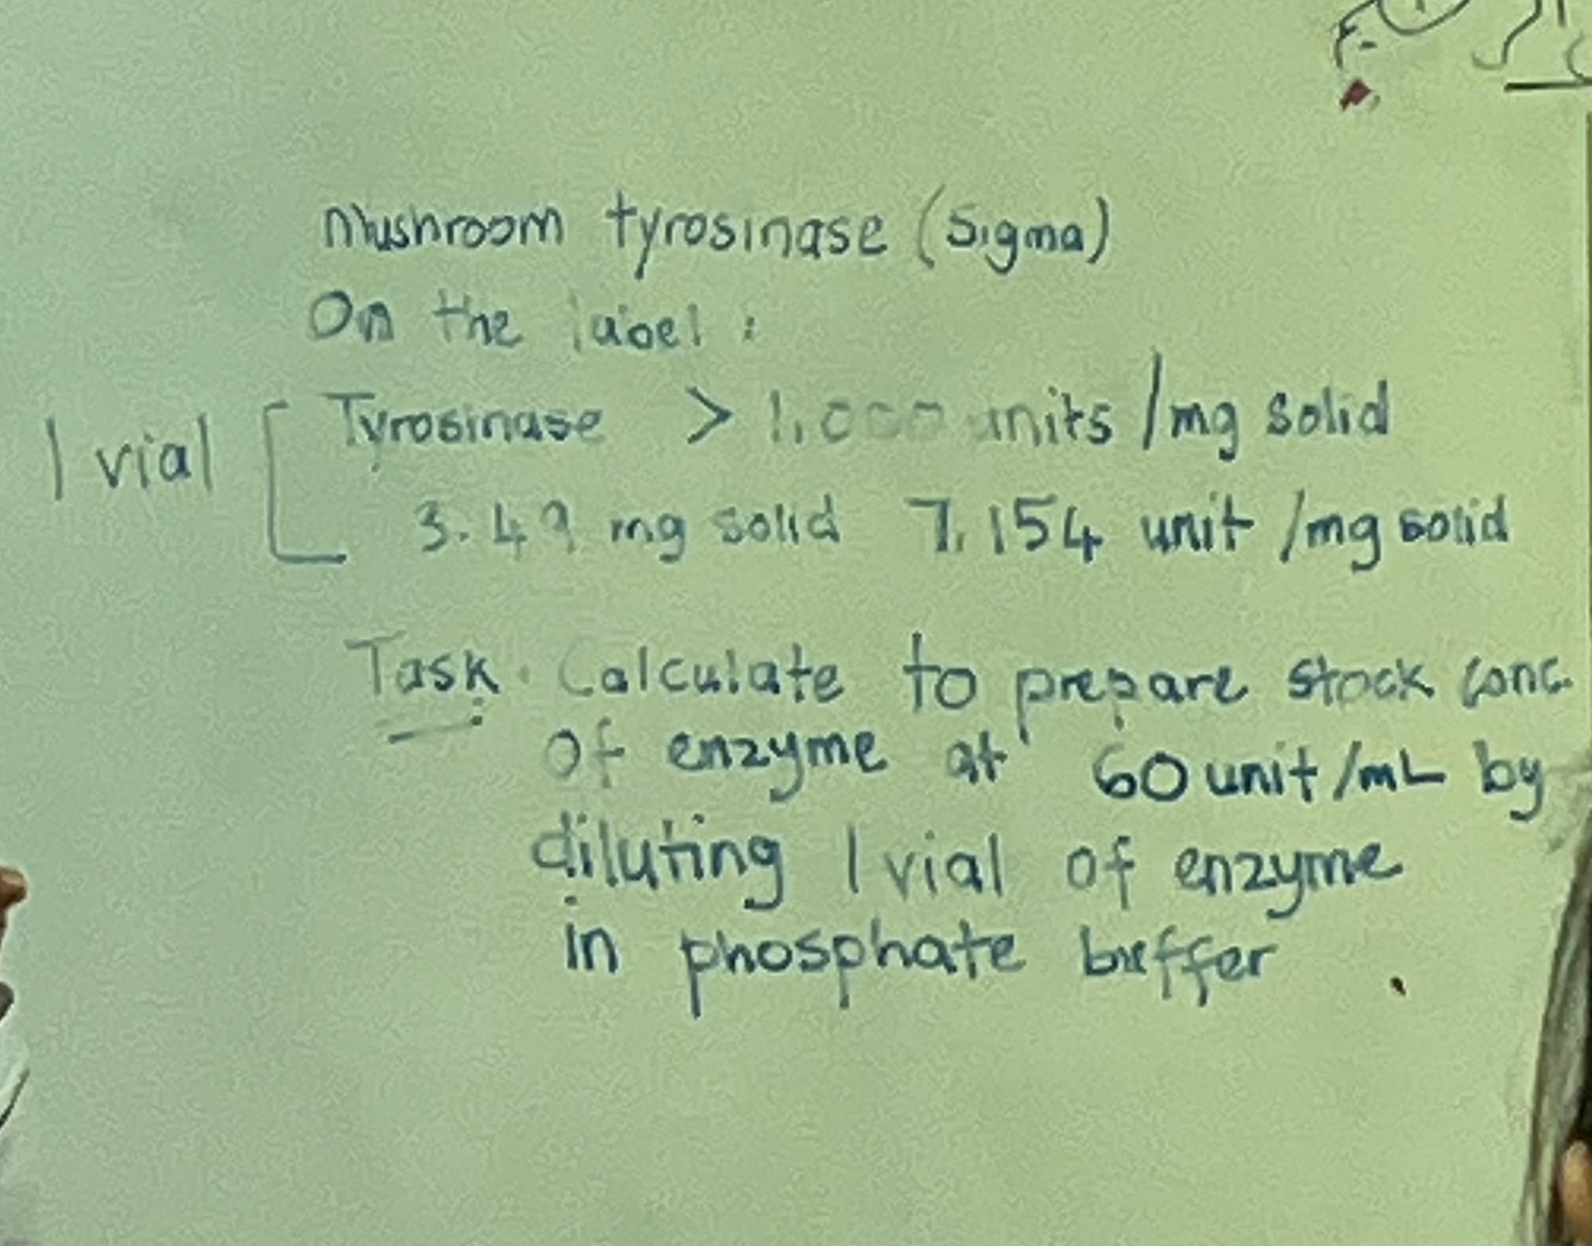 Mushroom tyrosinase (Sigma)
On the label :
1 vial
Tyrosinase > 1,000 units /mg solid
3.49 mg solid 7,154 unit /mg solid
Task : Calculate to prepare stock conc.
of enzyme at 60 unit/mL by
diluting 1 vial of enzyme
in phosphate buffer